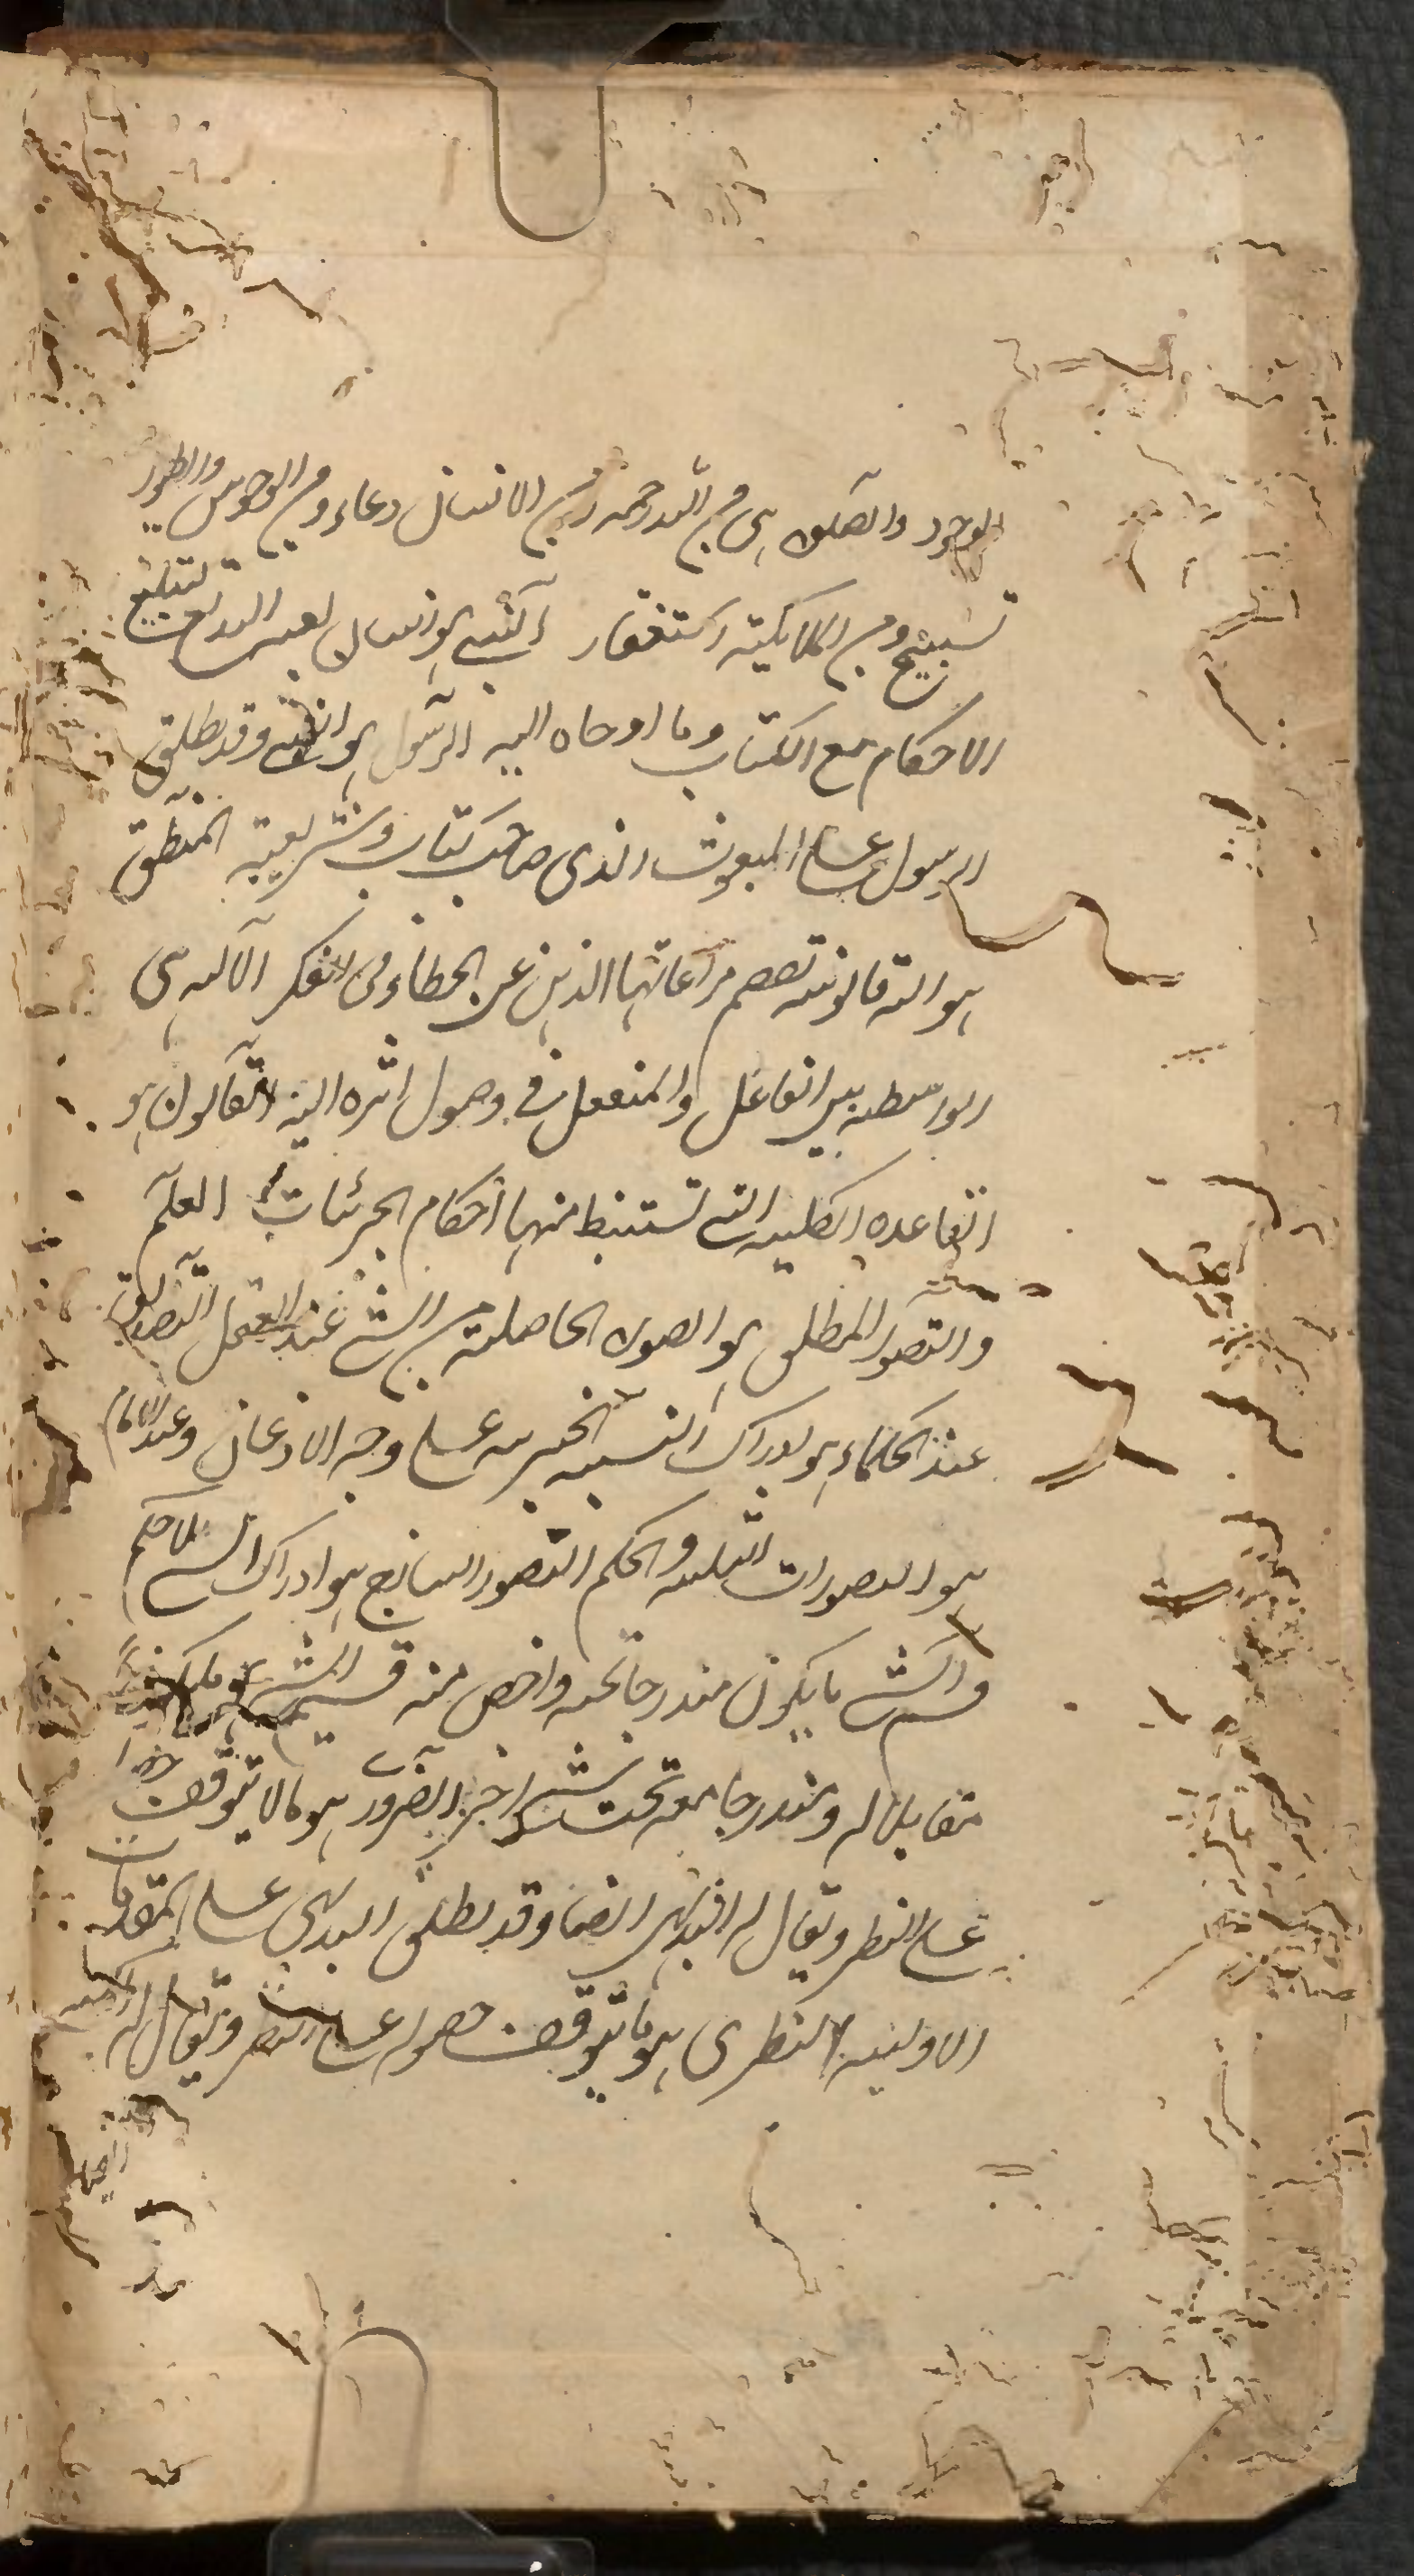 الوجود والصلوة هي من الله رحمة ومن الانسان دعاء ومن الوحوش والطيور
تسبيح ومن الملائكة استغفار النبي هو انسان بعثه الله لتبليغ
الاحكام مع الكتاب وما اوحاه اليه الرسول هو النبي وقد يطلق
الرسول على المبعوث الذي صاحب كتاب وشريعة المنطق
هو الة قانونية تعصم مراعاتها الذهن عن الخطاء في الفكر الآلة هي
الواسطة بين الفاعل والمنفعل في وصول اثره اليه القانون هو
القاعدة الكلية التي تستنبط منها احكام الجزئيات العلم
والتصور المطلق هو الصورة الحاصلة من الشئ عند العقل التصديق
عند الحكماء هو ادراك النسبة الخبرية على وجه الاذعان وعند الامام
هو التصورات الثلثة والحكم التصور الساذج هو ادراك الشئ بلا حكم
قسم الشئ ما يكون مندرجا تحته واخص منه قسيم الشئ هو ما يكون
مقابلا له ومندرجا معه تحت شئ اخر الضرورى هو ما لا يتوقف حصوله
على النظر ويقال له البديهى ايضا وقد يطلق البديهى على المقدمات
الاولية النظرى هو ما يتوقف حصوله على النظر ويقال له